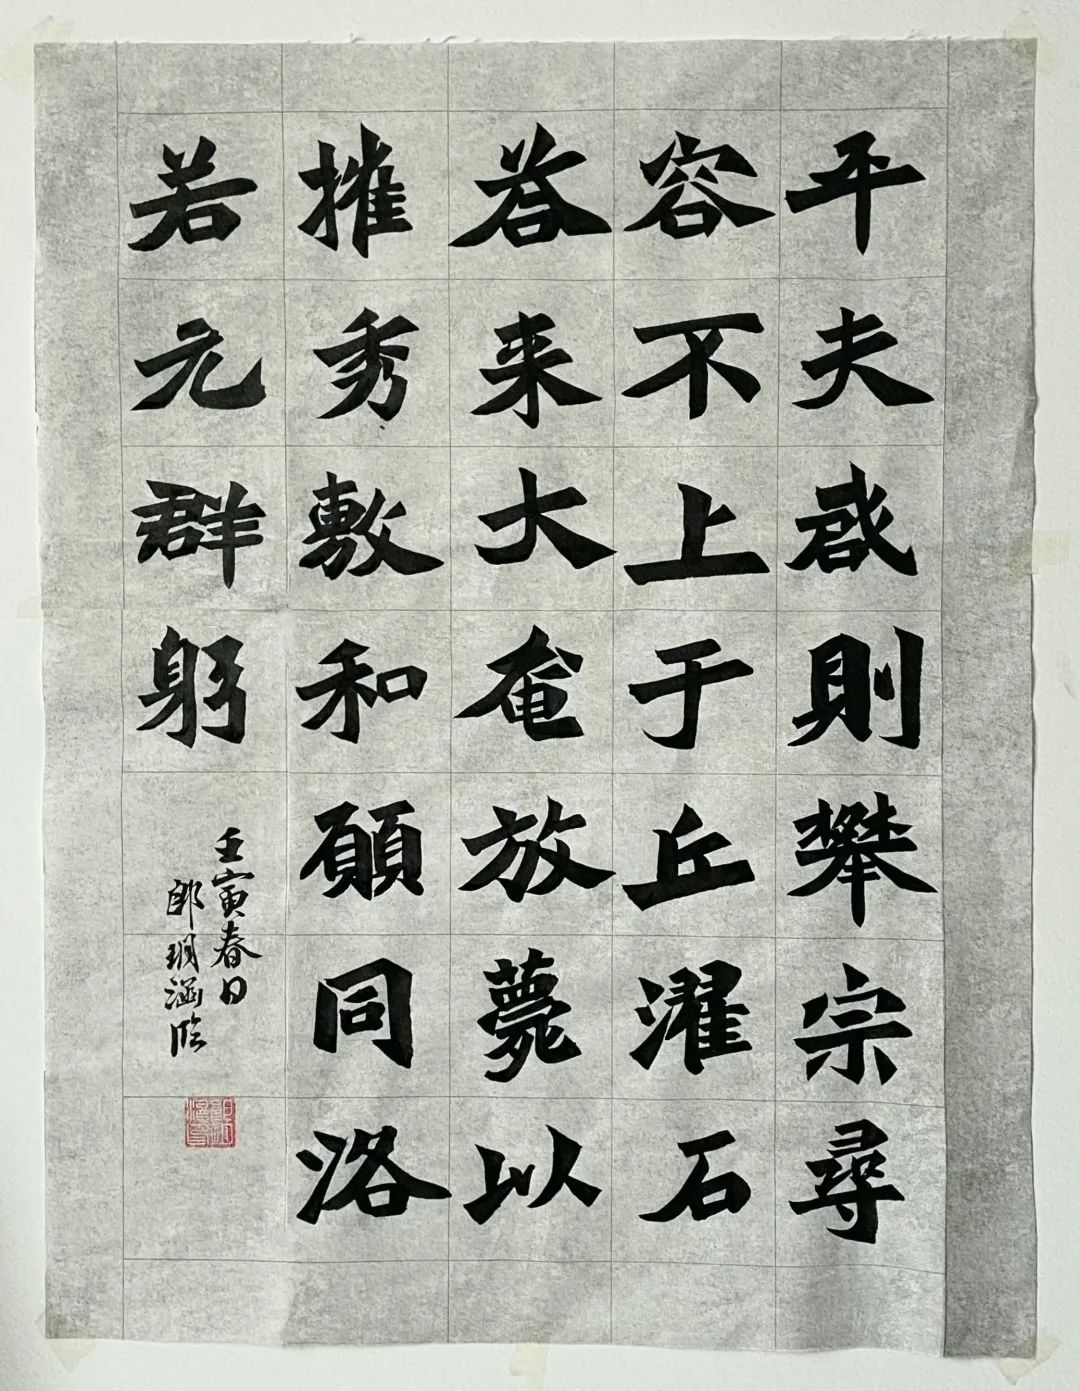 平夫啟則攀宗尋
容不上于丘濯石
荅来大奄放薨以
摧秀敷和願同洛
若元群躬
壬寅春日
郎玥涵临